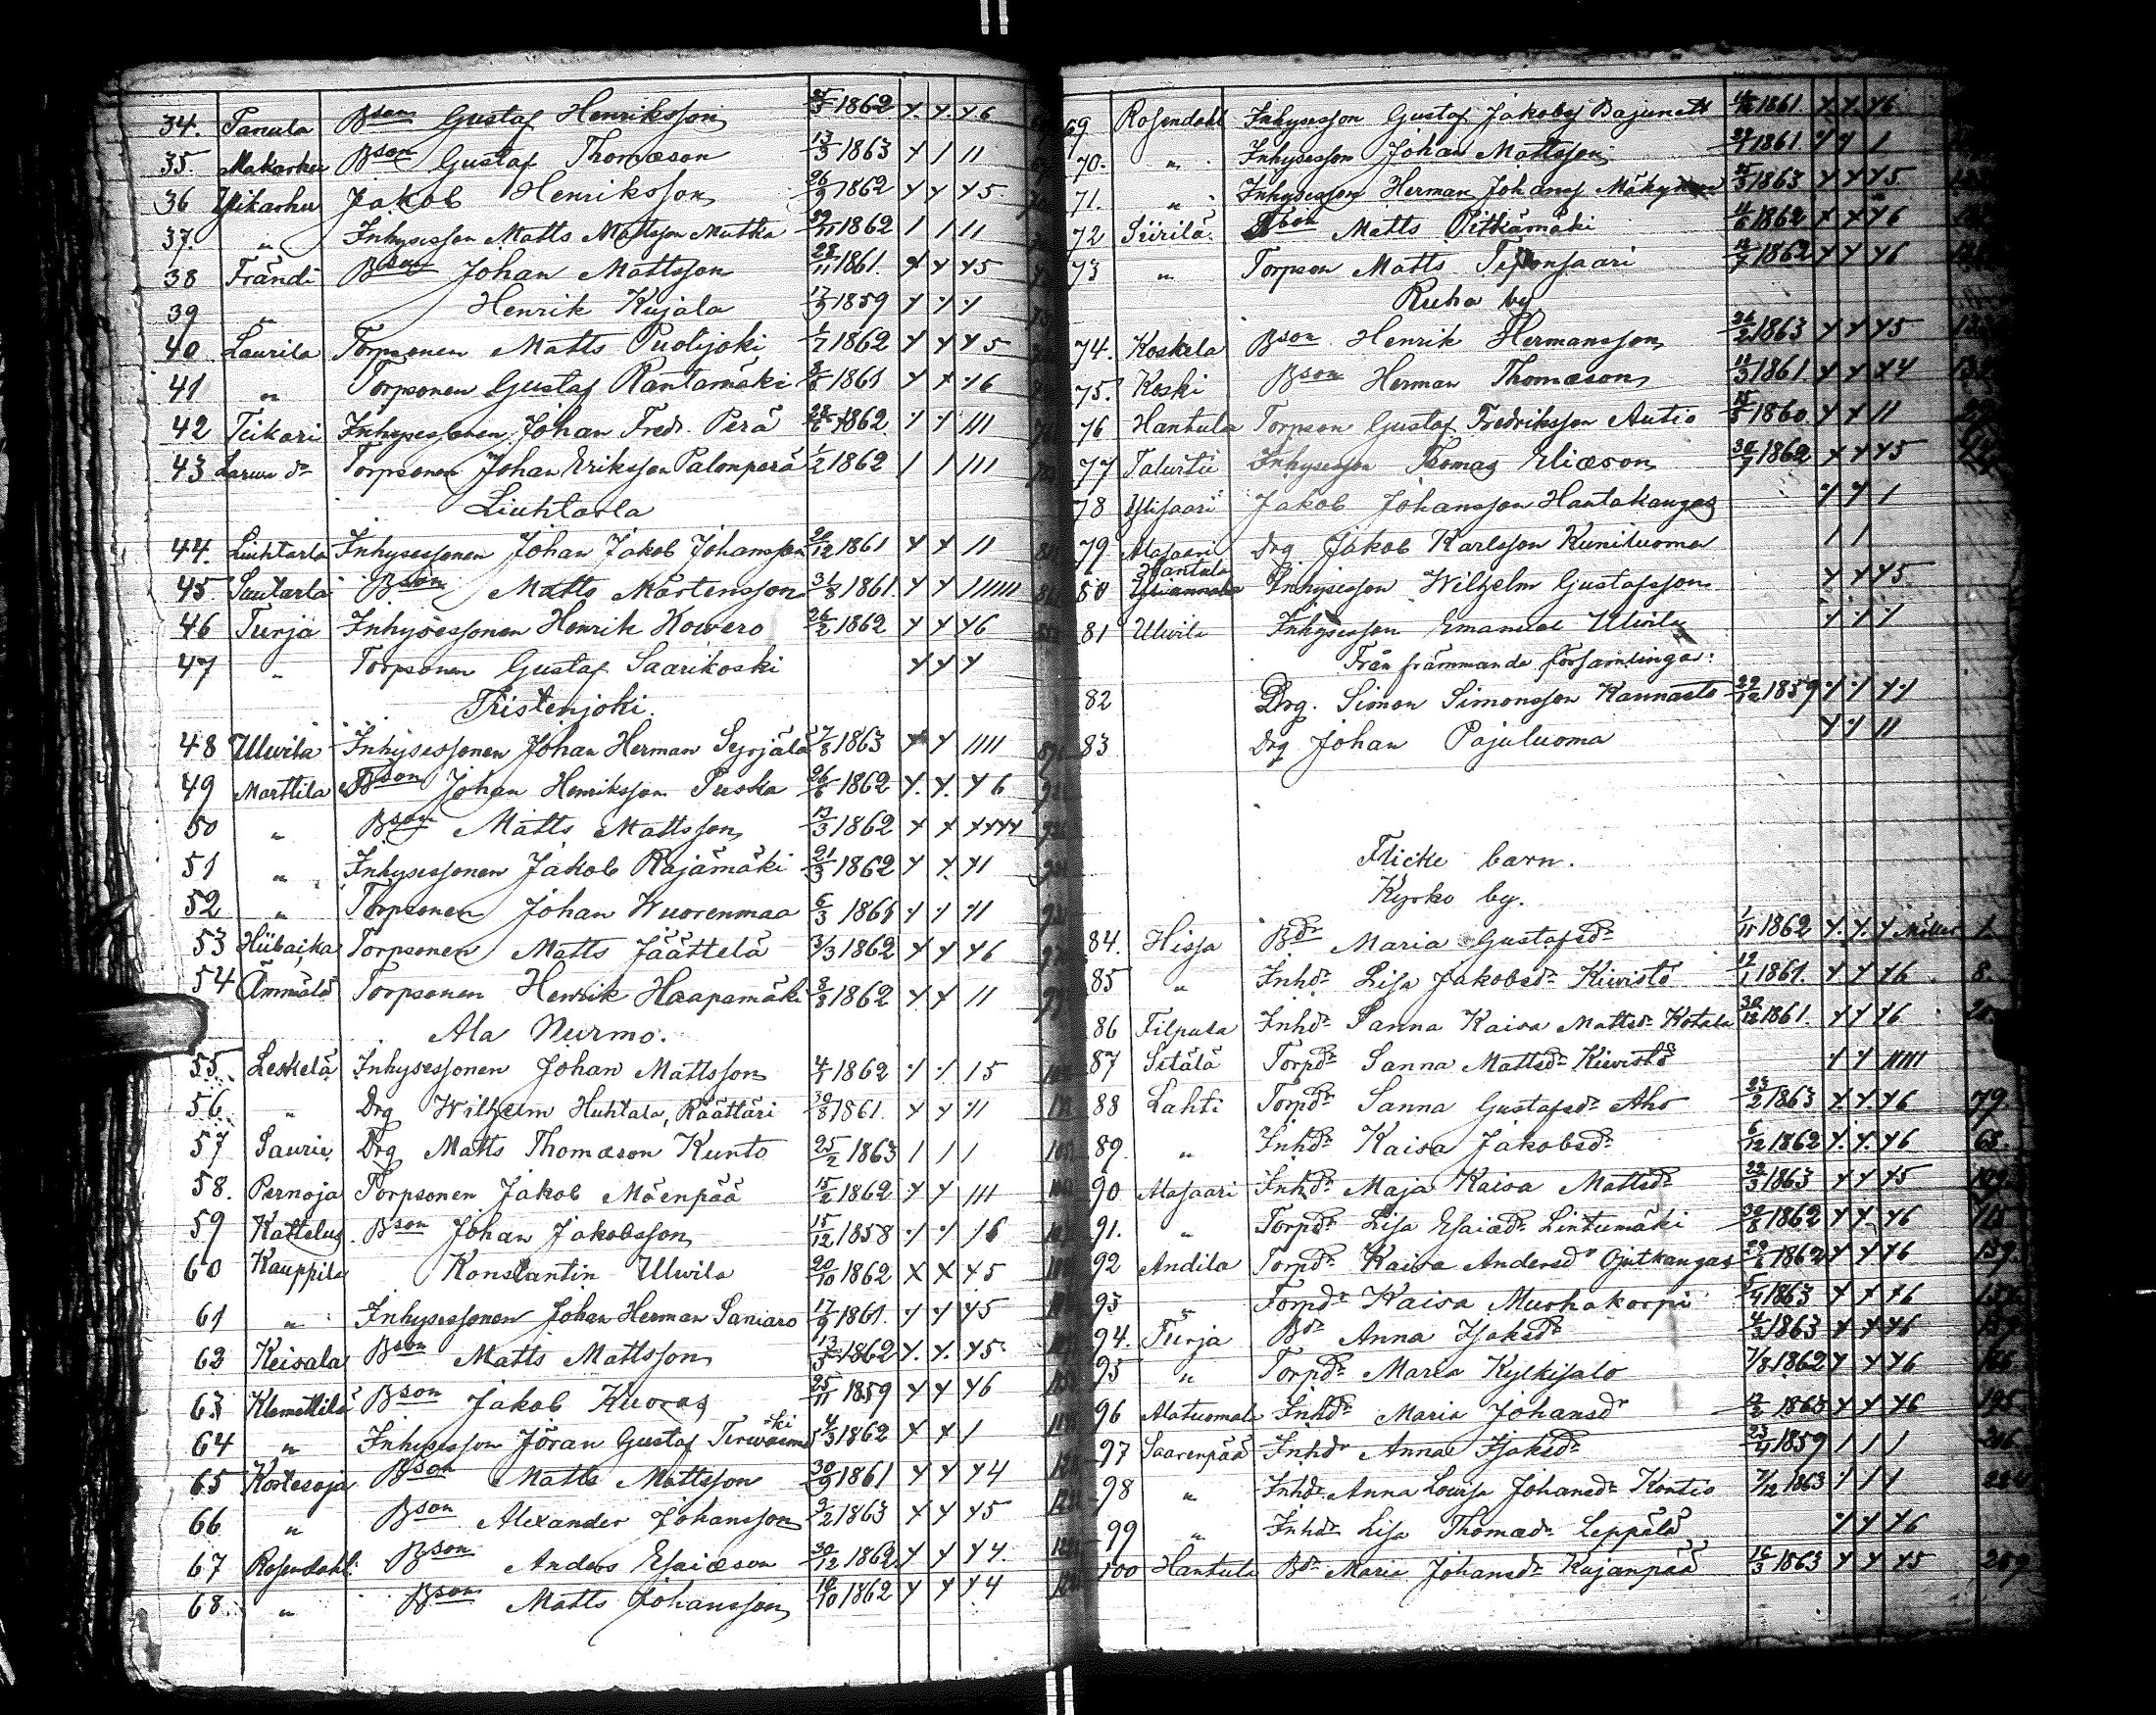 34. Panula Bson Gustaf Henriksson 1862 6
35. Makarhu Bson Gustaf Thomæson 13/3 1863
36 Ylikarhu Jakob Henriksson 26/9 1862 5
37. " Inhysesson Matts Mattsson Mutka 1862
38 Frändi Bson Johan Mattsson 28/11 1861 5
39 " Henrik Kujala 17/9 1859
40 Laurila Torpsonen Matts Puolijoki 1/7 1862 5
41 " Torpsonen Gustaf Rantamäki 1861 6
42 Tiikari Inhysessonen Johan Fredr. Perä 1862
43 Torpsonen Johan Eriksson Palonperä 1/2 1862
Liuhtarla
44. Liuhtarla Inhysessonen Johan Jakob Johansson 20/12 1861
45 Sautarla Bson Matts Mårtensson 31/8 1861
46 Turja Inhysessonen Henrik Kowero 26/2 1862 6
47 " Torpsonen Gustaf Saarikoski
Tiistenjoki.
48 Ulwila Inhysessonen Johan Herman Syrjälä 7/8 1863
49 Marttila Bson Johan Henriksson Puska 26/6 1862 6
50 " Bson Matts Mattsson 13/3 1862
51 " Inhysessonen Jakob Rajamäki 21/3 1862
52 " Torpsonen Johan Wuorenmaa 6/3 1865
53 Hiibaika Torpsonen Matts Jäättelä 3/3 1862 6
54 Ämmälä Torpsonen Henrik Haapamäki 1862
Ala Nurmo.
55. Leskelä Inhysessonen Johan Mattsson 4/1 1862 5
56. " Drg Wilhelm Huhtala, Räättäri 30/8 1861
57 Saurie Drg Matts Thomæson Kunto 25/2 1863
58. Pernoja Torpsonen Jakob Mäenpää 15/2 1862
59 Kattelus Bson Johan Jakobsson 15/12 1858 6
60 Kauppila Konstantin Ulwila 20/10 1862 5
61 " Inhysessonen Johan Herman Saniaro 17/9 1861 5
62 Keisala Bson Matts Mattsson 13/5 1862 5
63 Klemettilä Bson Jakob Kuoras 25/11 1859 6
64 " Inhysesson Jöran Gustaf 4/3 1862
65 Kortesoja Bson Matts Mattsson 30/9 1861 4
66 " Bson Alexander Johansson 9/2 1863 5
67 Rosendahl Bson Anders Esaiæson 30/12 1862 4
68. " Bson Matts Johansson 10/10 1862 4
69 Rosendahl Inhysesson Gustaf Jakobss Bajunett 1861 6
70. " Inhysesson Johan Mattsson 1861
71. " Inhysesson Herman Johanss Mäkynen 1863 5
72 Siirilä Bson Matts Pitkämäki 1862 6
73 " Torpson Matts 1862 6
Ruha by
74. Koskela Bson Henrik Hermansson 26/2 1863 5
75. Koski Bson Herman Thomæson 11/3 1861 4
76 Hantula Torpson Gustaf Fredriksson Autio 15/5 1860
77 Talvitii Inhysesson Thomas Eliæson 30/7 1862 5
78 Ylisaari Jakob Johansson Hantakangas
79. Alasaari Drg Jakob Karlsson Kuniluoma
80 Hantula Inhysesson Wilhelm Gustafsson 5
81 Ulwila Inhysesson Emanuel Ulwila
Från främmande församlingar:
82 Drg. Simon Simonsson Kannasto 29/12 1859
83 Drg Johan Pajuluoma
Flicke barn.
Kyrko by.
84. Hissa Bdr Maria Gustafsdr 1862 1
85 " Inhdr Lisa Jakobsdr Kiwistö 12/1 1861. 6 8.
86 Filpula Inhdr Sanna Kaisa Mattsdr Kotala 30/12 1861. 6
87 Sitälä Torpdr Sanna Mattsdr Kiwistö
88 Lahti Torpdr Sanna Gustafsdr Aho 23/2 1863 6 79.
89. " Inhdr Kaisa Jakobsdr 6/12 1862 6 68.
90 Alasaari Inhdr Maja Kaisa Mattsdr 22/3 1863 5
91. " Torpdr Lisa Esaiædr Lintumäki 30/8 1862 6
92 Andila Torpdr Kaisa Andersdr Ojutkangas 1862 6 139.
93 " Torpdr Kaisa Murhakorpi 5/4 1863 6
94. Turja Bdr Anna Isaksdr 4/3 1863 6
95 " Torpdr Maria Kylkisalo 7/8 1862 6
96 Alatuomala Inhdr Maria Johansdr 1863 6 195
97 Saarenpää Inhdr Anna Isaksdr 23/4 1859 206
98 " Inhdr Anna Lovisa Johansdr Kontio 7/12 1863
99 " Inhdr Lisa Thomædr Leppälä 6
100 Hantula Bdr Maria Johansdr Kujanpää 16/3 1863 5 289